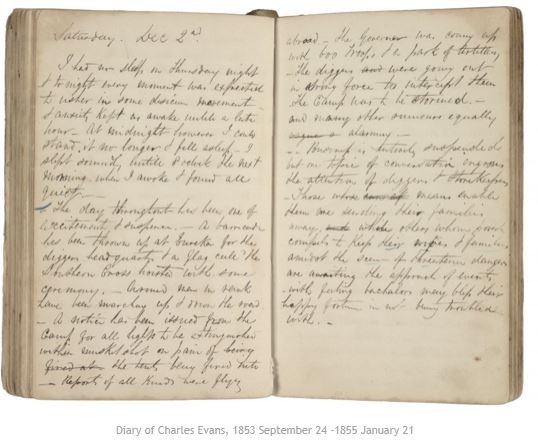 Saturday. Dec 2nd.
I had no sleep on Thursday night
& to night every moment was expected
to usher in some decisive movement
& anxiety kept me awake until a late
hour - At midnight however I could
stand it no longer & fell asleep - I
slept soundly until 8 o'clock the next
morning when I awoke & found all
quiet. -
The day throughout has been one of
excitement & suspense. - A barricade
has been thrown up at Eureka for the
diggers head quarters & a flag called the
Southern Cross hoisted with some
ceremony. - Armed men in rank
have been marching up & down the road
- A notice has been issued from the
Camp for all lights to be extinguished
within musket shot on pain of being
fired at the tents being fired into
- Reports of all kinds were flying
abroad - The Governor was coming up
with 600 Troops & a park of Artillery,
- The diggers and were going out
in strong force to intercept them
The Camp was to be stormed. -
and many other rumours equally
vague & alarming -
- Business is entirely suspended
but one topic of conversation engrosses
the attention of diggers & storekeepers
- Those whose means enable
them are sending their families
away, and while others whom your
compels to keep their wives & families
amidst the scene of threatened danger
are awaiting the approach of events
with feeling bachelors may bless their
happy fortune in not being troubled
with. -
Diary of Charles Evans, 1853 September 24 -1855 January 21